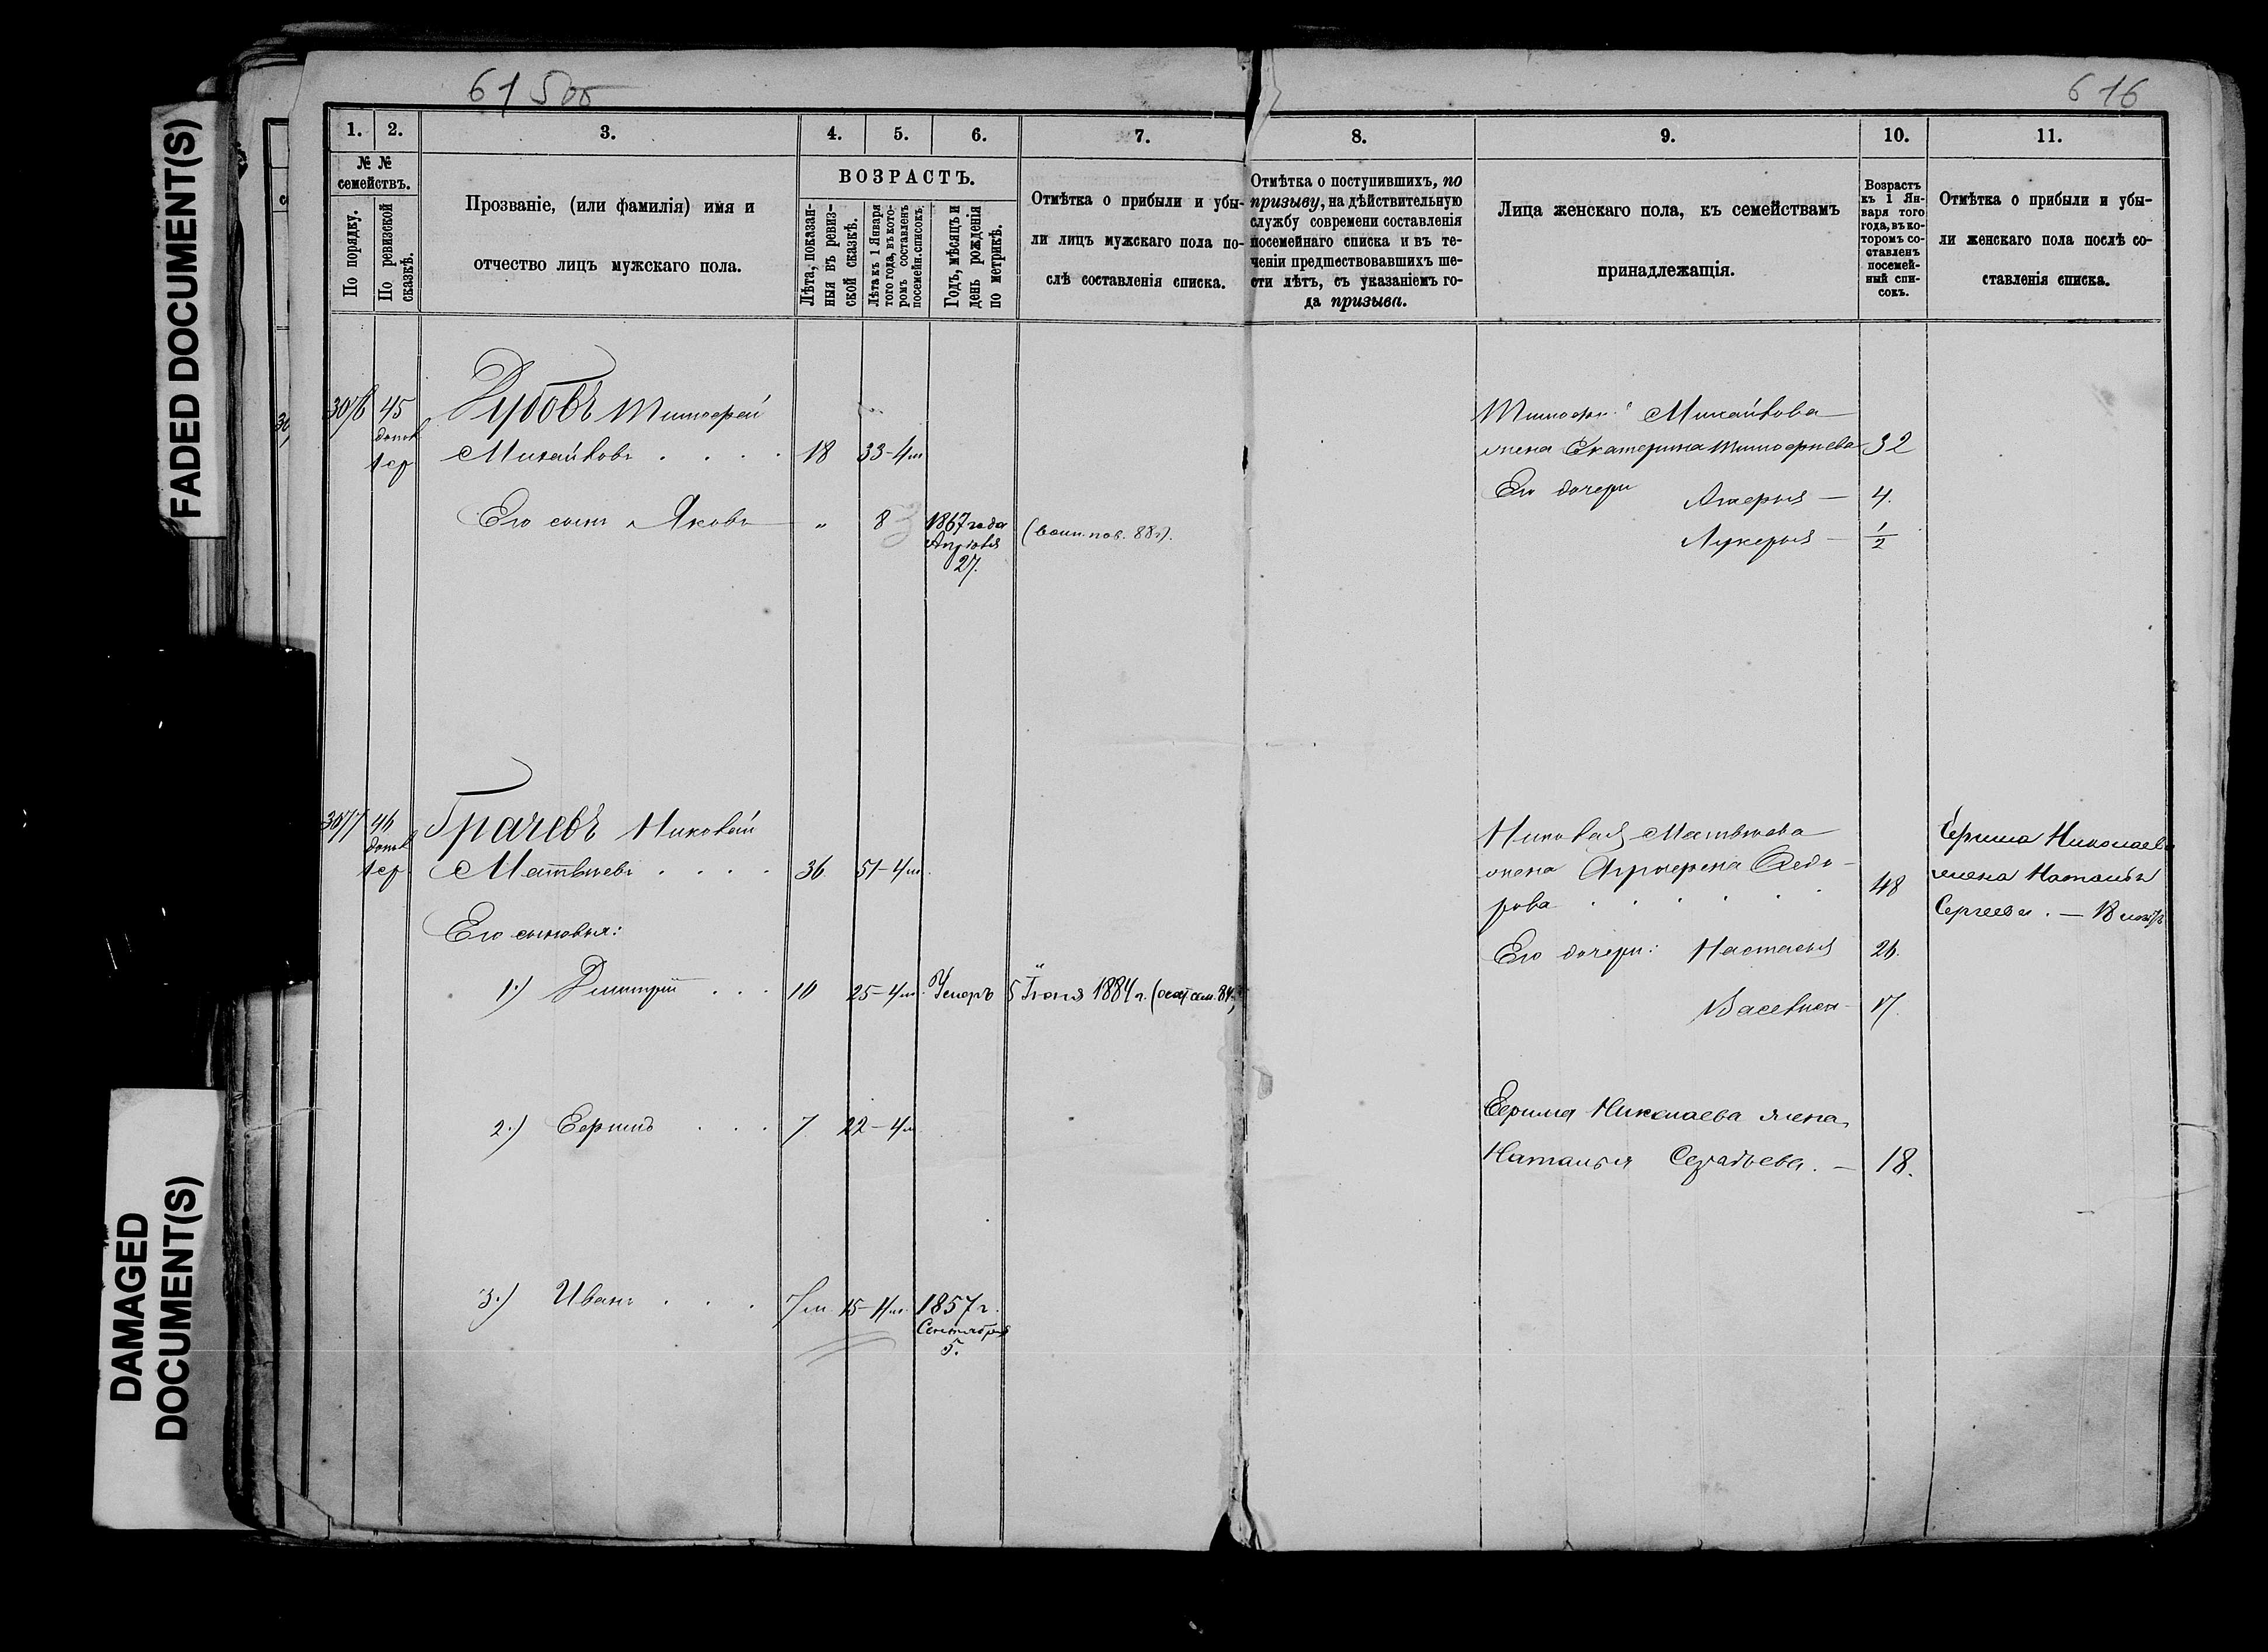 FADED DOCUMENT(S)
DAMAGED
DOCUMENT(S)
615об
616
1.
2.
3.
4.
5.
6.
7.
8.
9.
10.
11.
№ №
семействъ.
По порядку.
По ревизской
сказкѣ.
Прозваніе, (или фамилія) имя и
отчество лицъ мужскаго пола.
ВОЗРАСТЪ.
Лѣта, показан-
ныя въ ревиз-
ской сказкѣ.
Лѣта къ 1 Января
того года, въ кото-
ромъ составленъ
посемейн. списокъ.
Годъ, мѣсяцъ и
день рожденія
по метрикѣ.
Отмѣтка о прибыли и убы-
ли лицъ мужскаго пола по-
слѣ составленія списка.
Отмѣтка о поступившихъ, по
призыву, на дѣйствительную
службу современи составленія
посемейнаго списка и въ те-
ченіи предшествовавшихъ ше-
сти лѣтъ, съ указаніемъ го-
да призыва.
Лица женскаго пола, къ семействамъ
принадлежащія.
Возрастъ
къ 1 Ян-
варя того
года, въ ко-
торомъ со-
ставленъ
посемей-
ный спи-
сокъ.
Отмѣтка о прибыли и убы-
ли женскаго пола послѣ со-
ставленія списка.
3076 45 Зубовъ Тимофей
Михайловъ . . . . 18 33-4м
Его сынъ Яковъ „ 8 1867 года
Апрѣля
27.
(воин. пов. 88г).
Михайлова
жена Екатерина Тимофеева 32
Его дочери
4.
Лукерья — 1/2
3077 46 Грачевъ Николай
Матвѣевъ . . . . 36. 51-4м.
Его сыновья:
1.) Дмитрій . . . 10 25-4м. Умеръ 5 Іюня 1884 г.
2.) Ефимъ . . . 7 22-4м
3.) Иванъ . . . 7м. 15-11м. 1857 г.
Сентября
5.
Николая Матвѣева
жена Агрофена Федо-
рова . . . . . 48
Его дочери: Настасья 26.
Василиса 17.
Ефима Николаева жена
Наталья — 18.
Ефима Николаев
жена Наталья
Сергеева. — 18